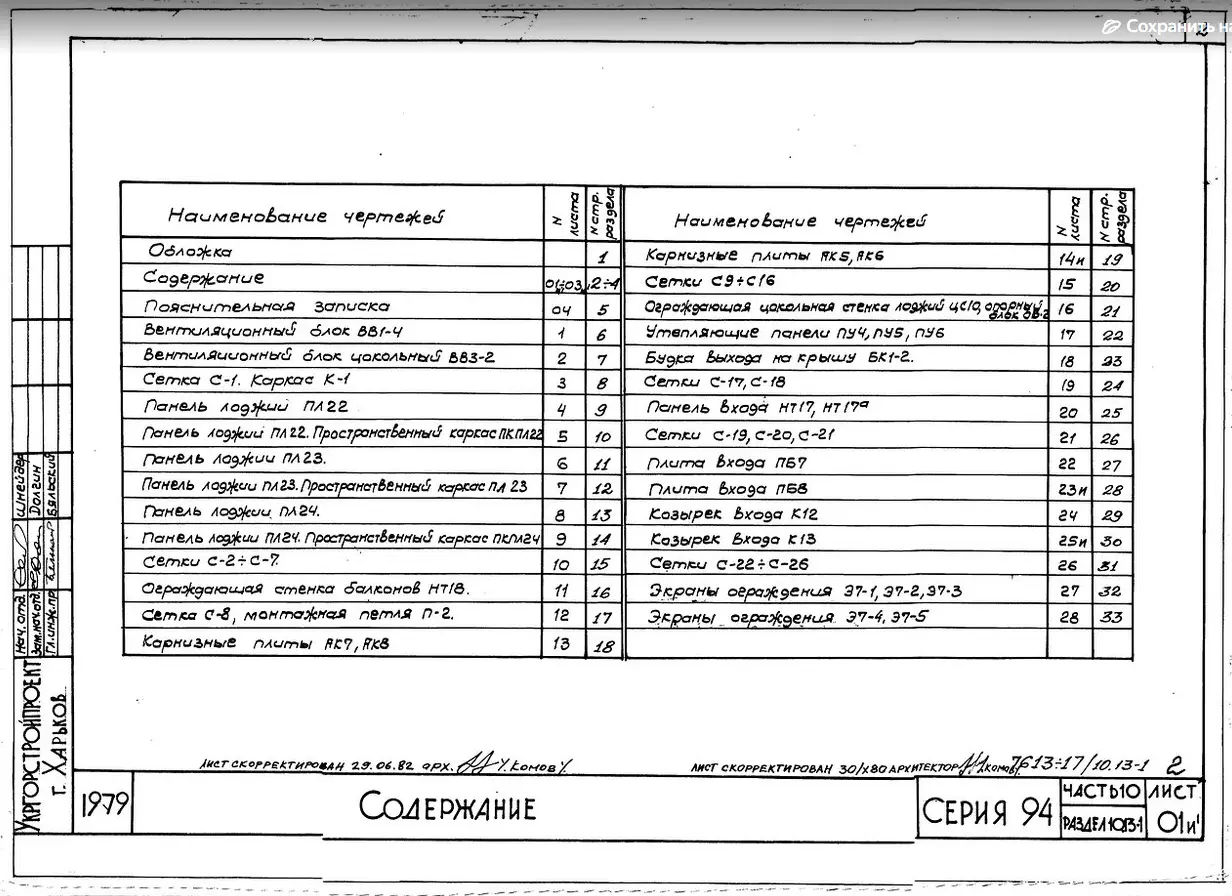 Сохранить на
2
Наименование чертежей | N листа | N стр. раздела
Обложка | | 1
Содержание | 01÷03 | 2÷4
Пояснительная записка | 04 | 5
Вентиляционный блок ВВ1-4 | 1 | 6
Вентиляционный блок цокольный ВВ3-2 | 2 | 7
Сетка С-1. Каркас К-1 | 3 | 8
Панель лоджий ПЛ22 | 4 | 9
Панель лоджии ПЛ22. Пространственный каркас ПКПЛ22 | 5 | 10
Панель лоджии ПЛ23. | 6 | 11
Панель лоджии ПЛ23. Пространственный каркас ПЛ 23 | 7 | 12
Панель лоджии ПЛ24. | 8 | 13
Панель лоджии ПЛ24. Пространственный каркас ПКПЛ24 | 9 | 14
Сетки С-2÷С-7. | 10 | 15
Ограждающая стенка балконов НТ18. | 11 | 16
Сетка С-8, монтажная петля П-2. | 12 | 17
Карнизные плиты АК7, АК8 | 13 | 18
Наименование чертежей | N листа | N стр. раздела
Карнизные плиты АК5, АК6 | 14и | 19
Сетки С9÷С16 | 15 | 20
Ограждающая цокольная стенка лоджий ЦС10, опорный блок ОВ-2 | 16 | 21
Утепляющие панели ПУ4, ПУ5, ПУ6 | 17 | 22
Будка выхода на крышу БК1-2. | 18 | 23
Сетки С-17, С-18 | 19 | 24
Панель входа НТ17, НТ17а | 20 | 25
Сетки С-19, С-20, С-21 | 21 | 26
Плита входа ПБ7 | 22 | 27
Плита входа ПБ8 | 23и | 28
Козырек входа К12 | 24 | 29
Козырек входа К13 | 25и | 30
Сетки С-22÷С-26 | 26 | 31
Экраны ограждения Э7-1, Э7-2, Э7-3 | 27 | 32
Экраны ограждения Э7-4, Э7-5 | 28 | 33
Нач. отд. Шнейдер
Зам. нач. отд. Долгин
Гл. инж. пр. Бяльский
УКРГОРСТРОЙПРОЕКТ
г. Харьков
Лист скорректирован 29.06.82 арх. /Комов/
Лист скорректирован 30/X80 Архитектор /Комов/
7613÷17/10.13-1 2
1979
Содержание
Серия 94
Часть 10
Раздел 10.13-1
Лист
01и'